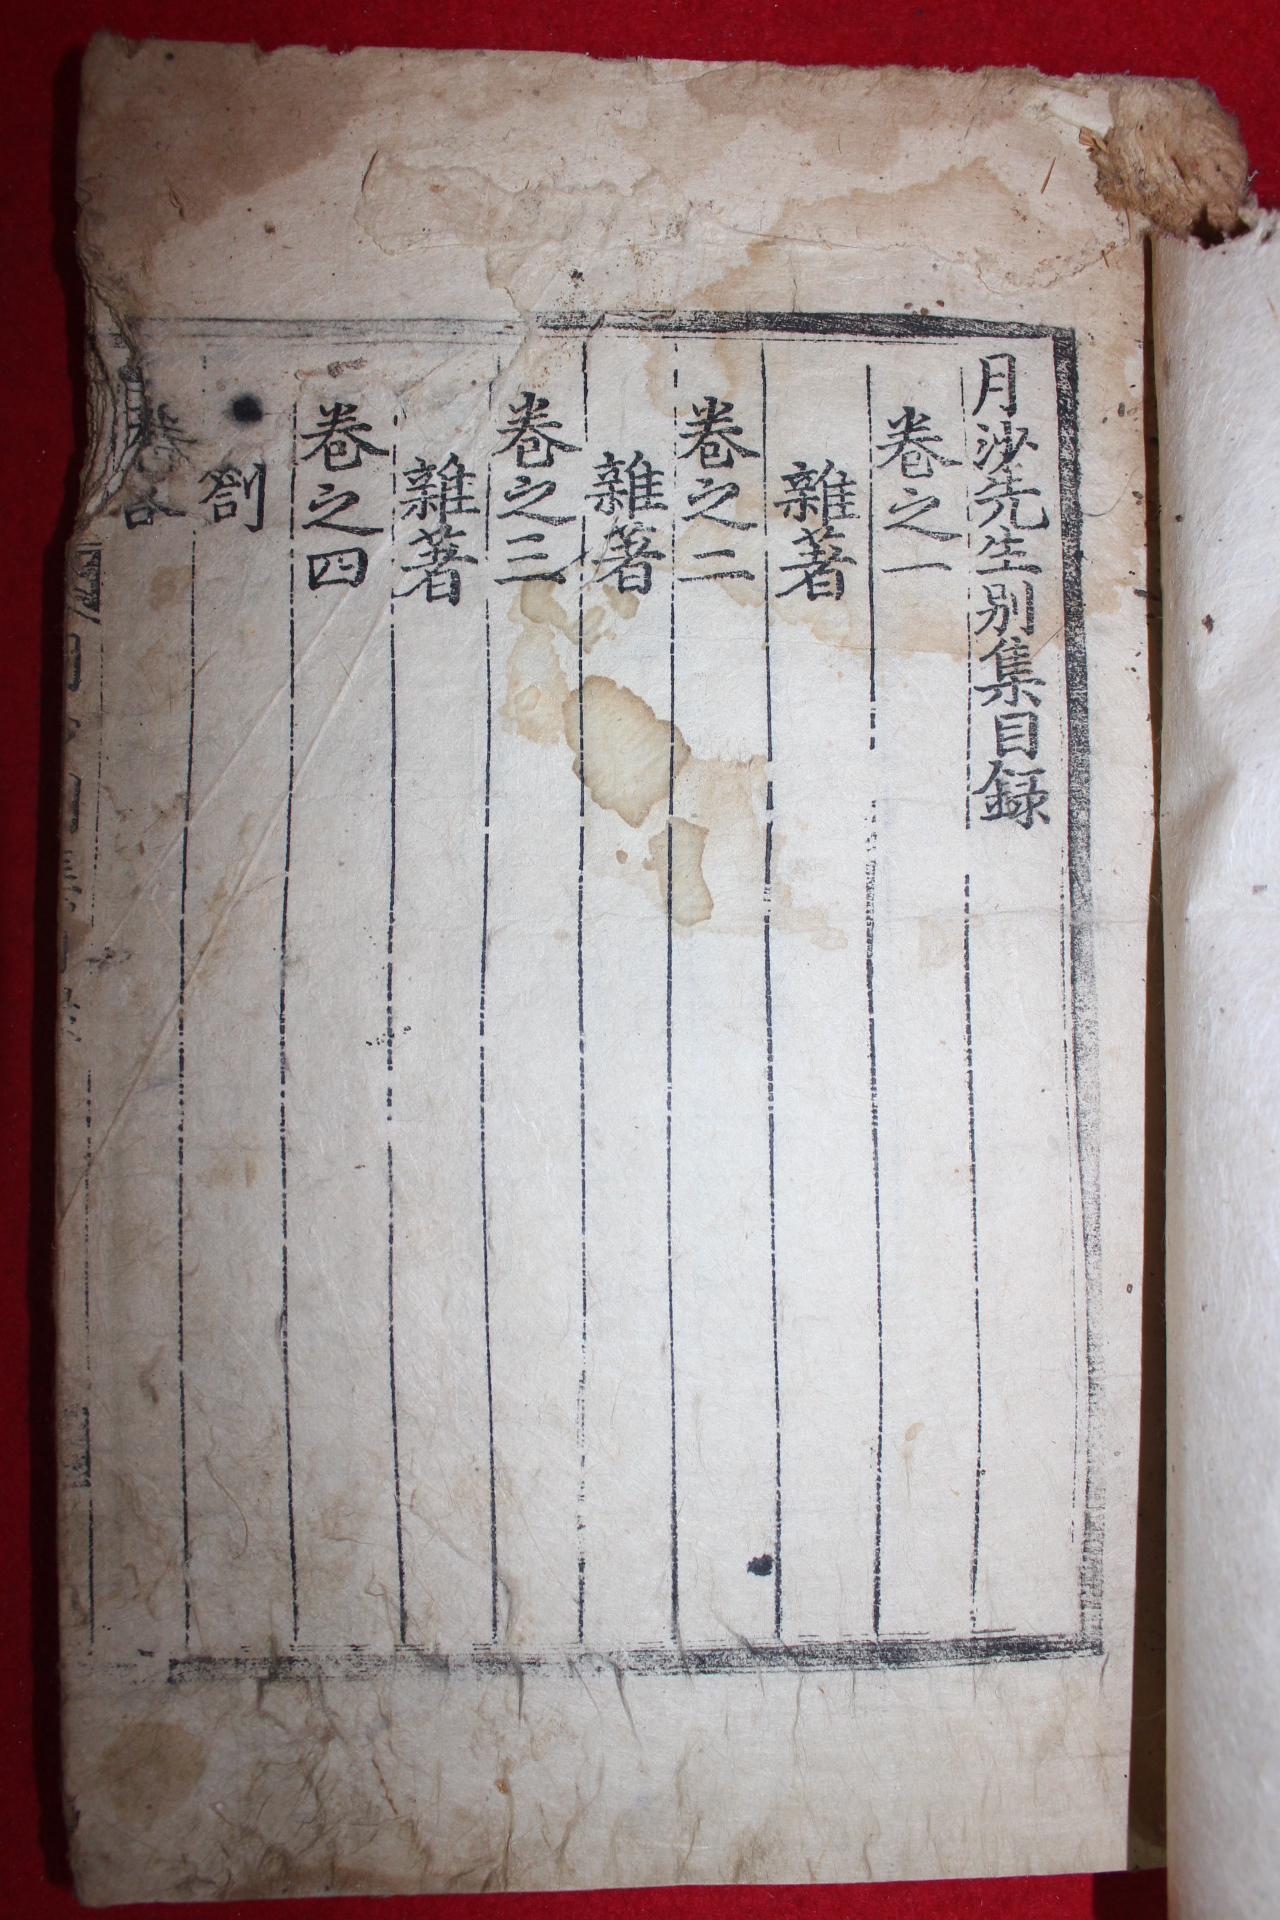 月沙先生別集目録
卷之一
雜著
卷之二
雜著
卷之三
雜著
卷之四
劄
卷